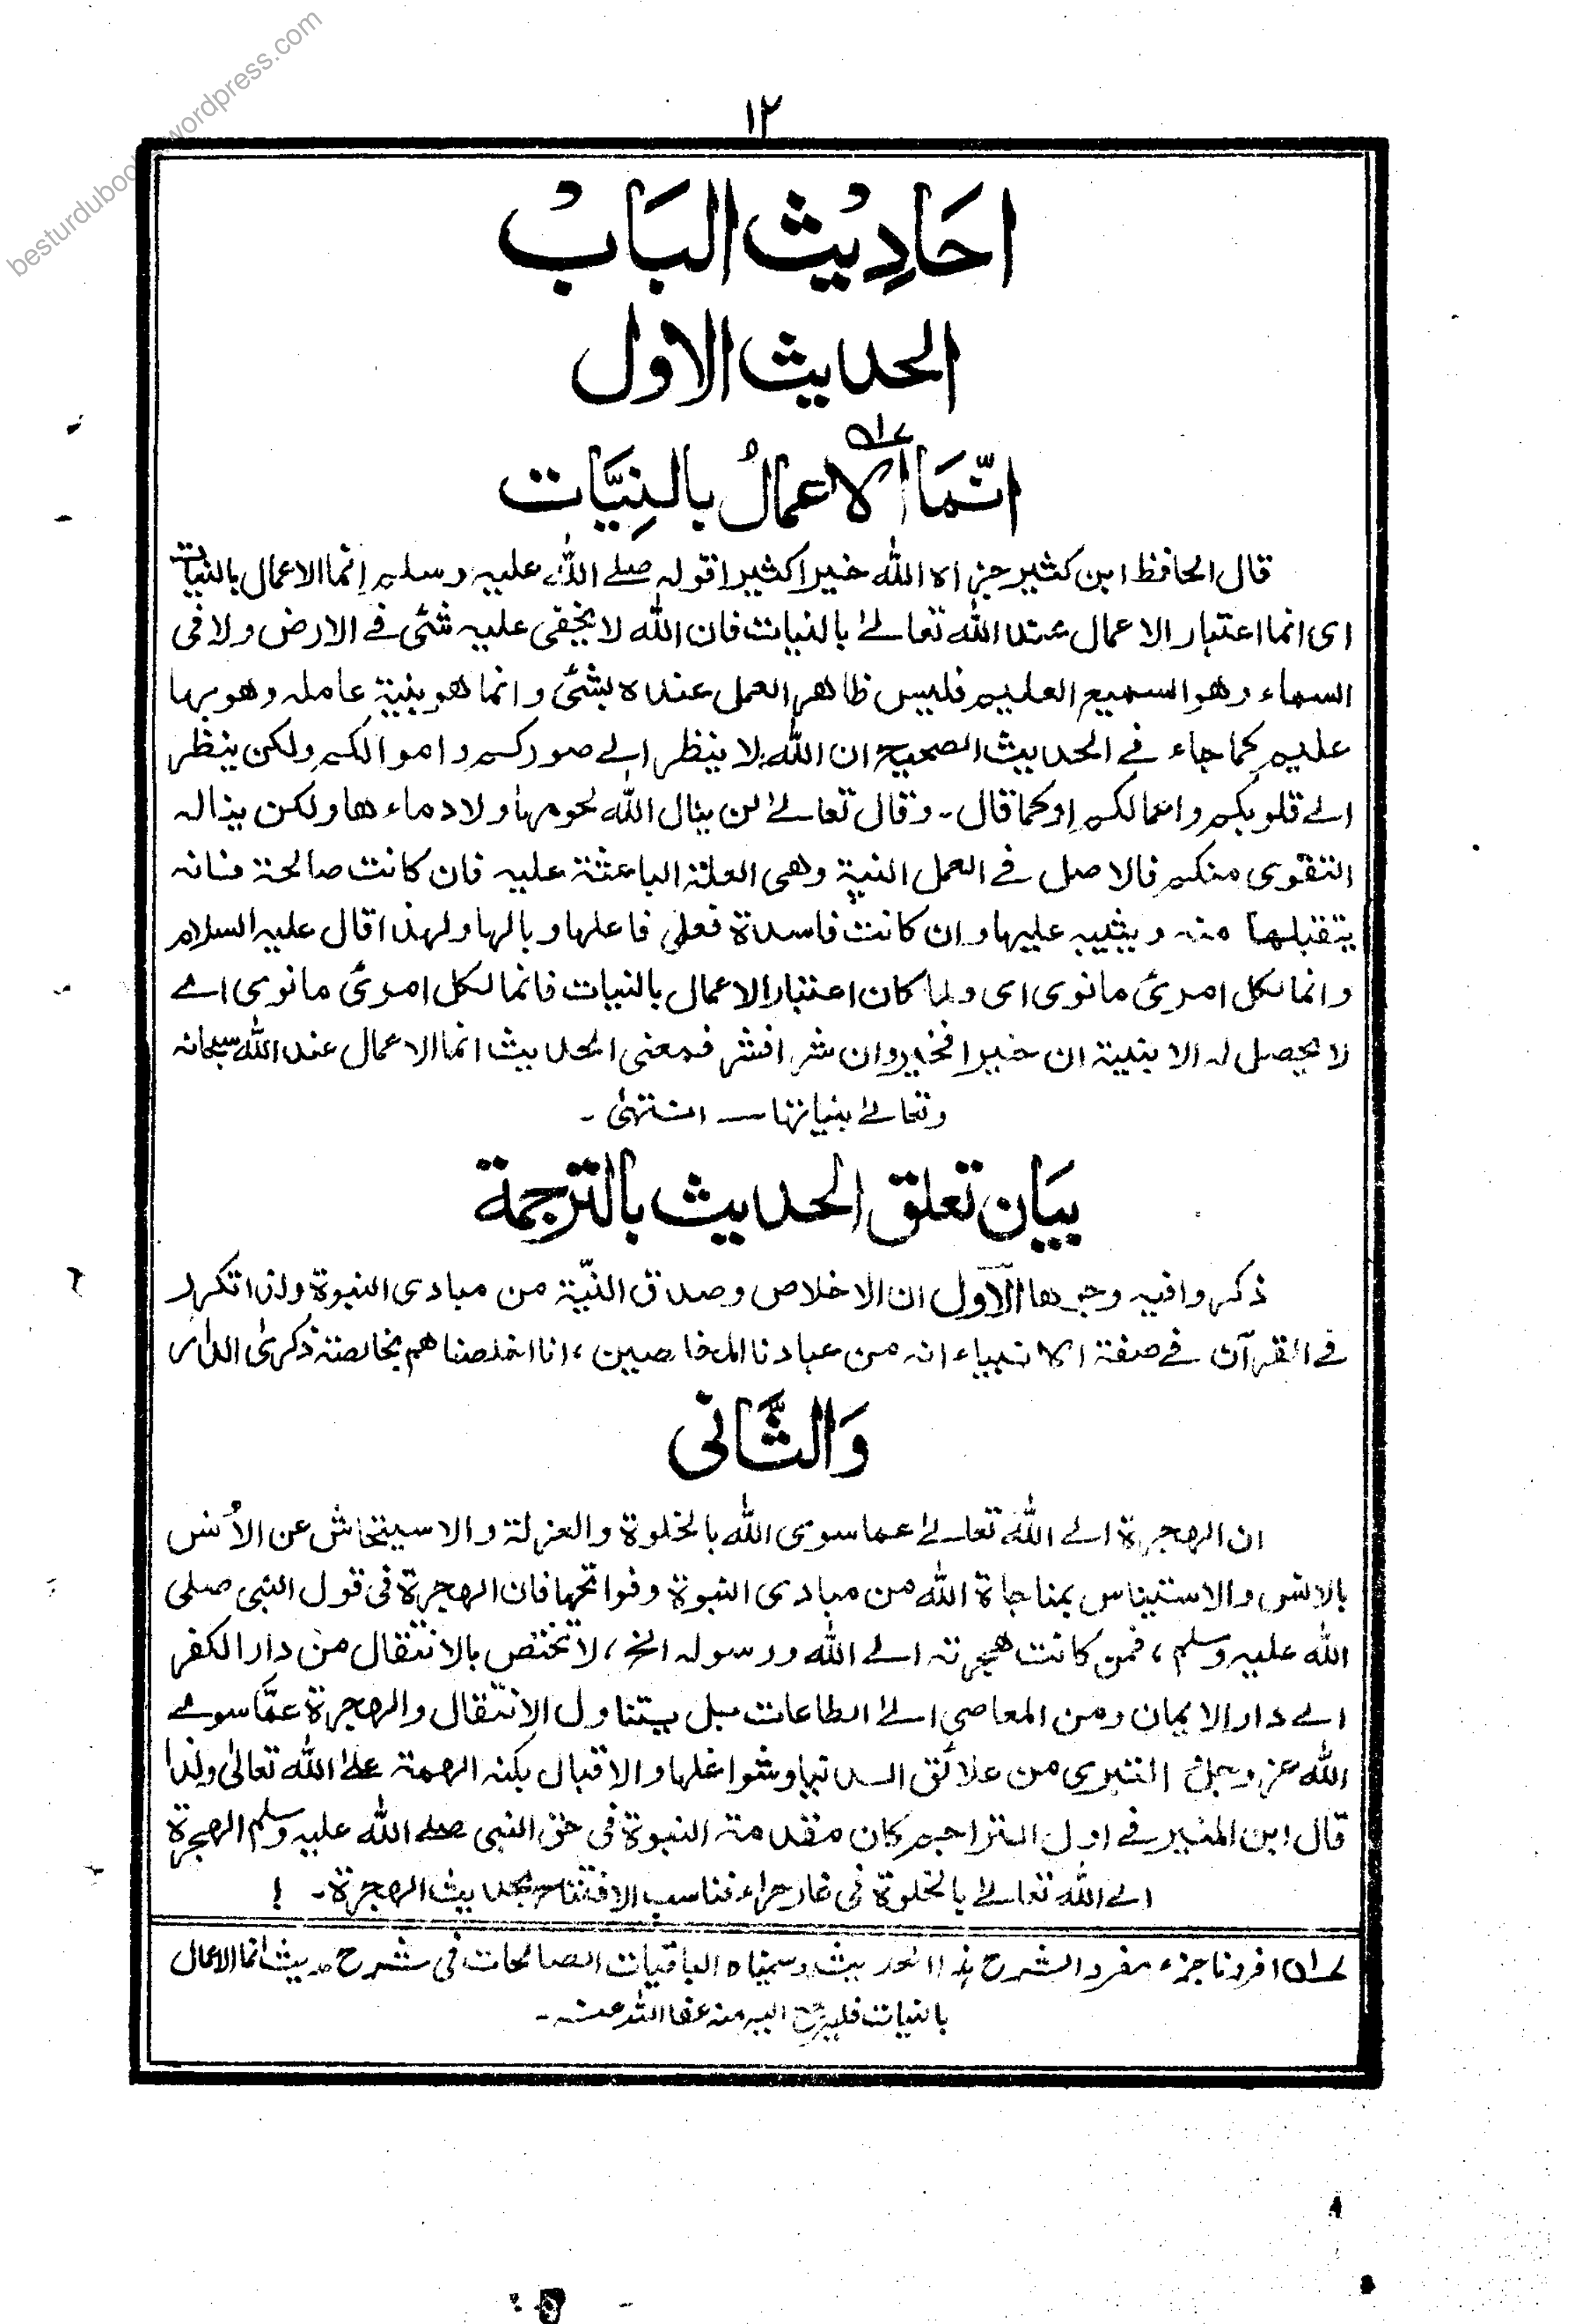 besturdubooks.wordpress.com
١٢
احَادِيْث البَابْ
الحديث الاول
انّمَا الاعمالُ بالنِيَّات
قال الحافظ ابن كثير جزاه الله خيرا كثيرا قوله صلے الله عليه وسلم انما الاعمال بالنيات
اى انما اعتبار الاعمال عند الله تعالےٰ بالنيات فان الله لا يخفى عليه شئ فے الارض ولا فى
السماء وهو السميع العليم فليس ظاهر العمل عنده بشئ وانما هو بنية عامله وهو بها
عليم كما جاء فے الحديث الصحيح ان الله لا ينظر الے صوركم و اموالكم ولكن ينظر
الے قلوبكم و اعمالكم او كما قال ـ وقال تعالےٰ لن ينال الله لحومها ولا دماءها ولكن يناله
التقوى منكم فالاصل فے العمل النية وهى العلة الباعثة عليه فان كانت صالحة فانه
يتقبلها منه ويثيبه عليها وان كانت فاسدة فعلى فاعلها وبالها ولهذا قال عليه السلام
وانما لكل امرئ مانوى اى ولما كان اعتبار الاعمال بالنيات فانما لكل امرئ مانوى اے
لا يحصل له الا بنية ان خيرا فخير وان شرا فشر فمعنى الحديث انما الاعمال عند الله سبحانه
وتعالےٰ بنياتها ــ انتهٰى ـ
بيَان تعلق الحديث بالترجمة
ذكروا فيه وجوها الاول ان الاخلاص وصدق النيّة من مبادى النبوة ولذا تكرر
فے القرآن فے صفة الانبياء انه من عبادنا المخلصين ، انا اخلصناهم بخالصة ذكرى الدار
وَالثَّانى
ان الهجرة الے الله تعالےٰ عما سوى الله بالخلوة والعزلة والاستيحاش عن الاُنس
بالانس والاستيناس بمناجاة الله من مبادى النبوة وفواتحها فان الهجرة فى قول النبى صلى
الله عليه وسلم ، فمن كانت هجرته الے الله ورسوله الخ ، لا تختص بالانتقال من دار الكفر
الے دار الايمان ومن المعاصى الےٰ الطاعات بل يتناول الانتقال والهجرة عمّا سوے
الله عز وجل التبرى من علائق الدنيا وشواغلها والاقبال بكنه الهمة علےٰ الله تعالىٰ ولذا
قال ابن المنير فے اول التراجم كان مقدمة النبوة فى حق النبى صلے الله عليه وسلم الهجرة
الے الله تعالےٰ بالخلوة فى غار حراء فناسب الافتتاح بحديث الهجرة ـ !
لـه افردنا جزء مفرد الشرح هذا الحديث وسميناه الباقيات الصالحات فى شرح حديث انما الاعمال
بالنيات فليرجع اليه منه عفا الله عنه ـ